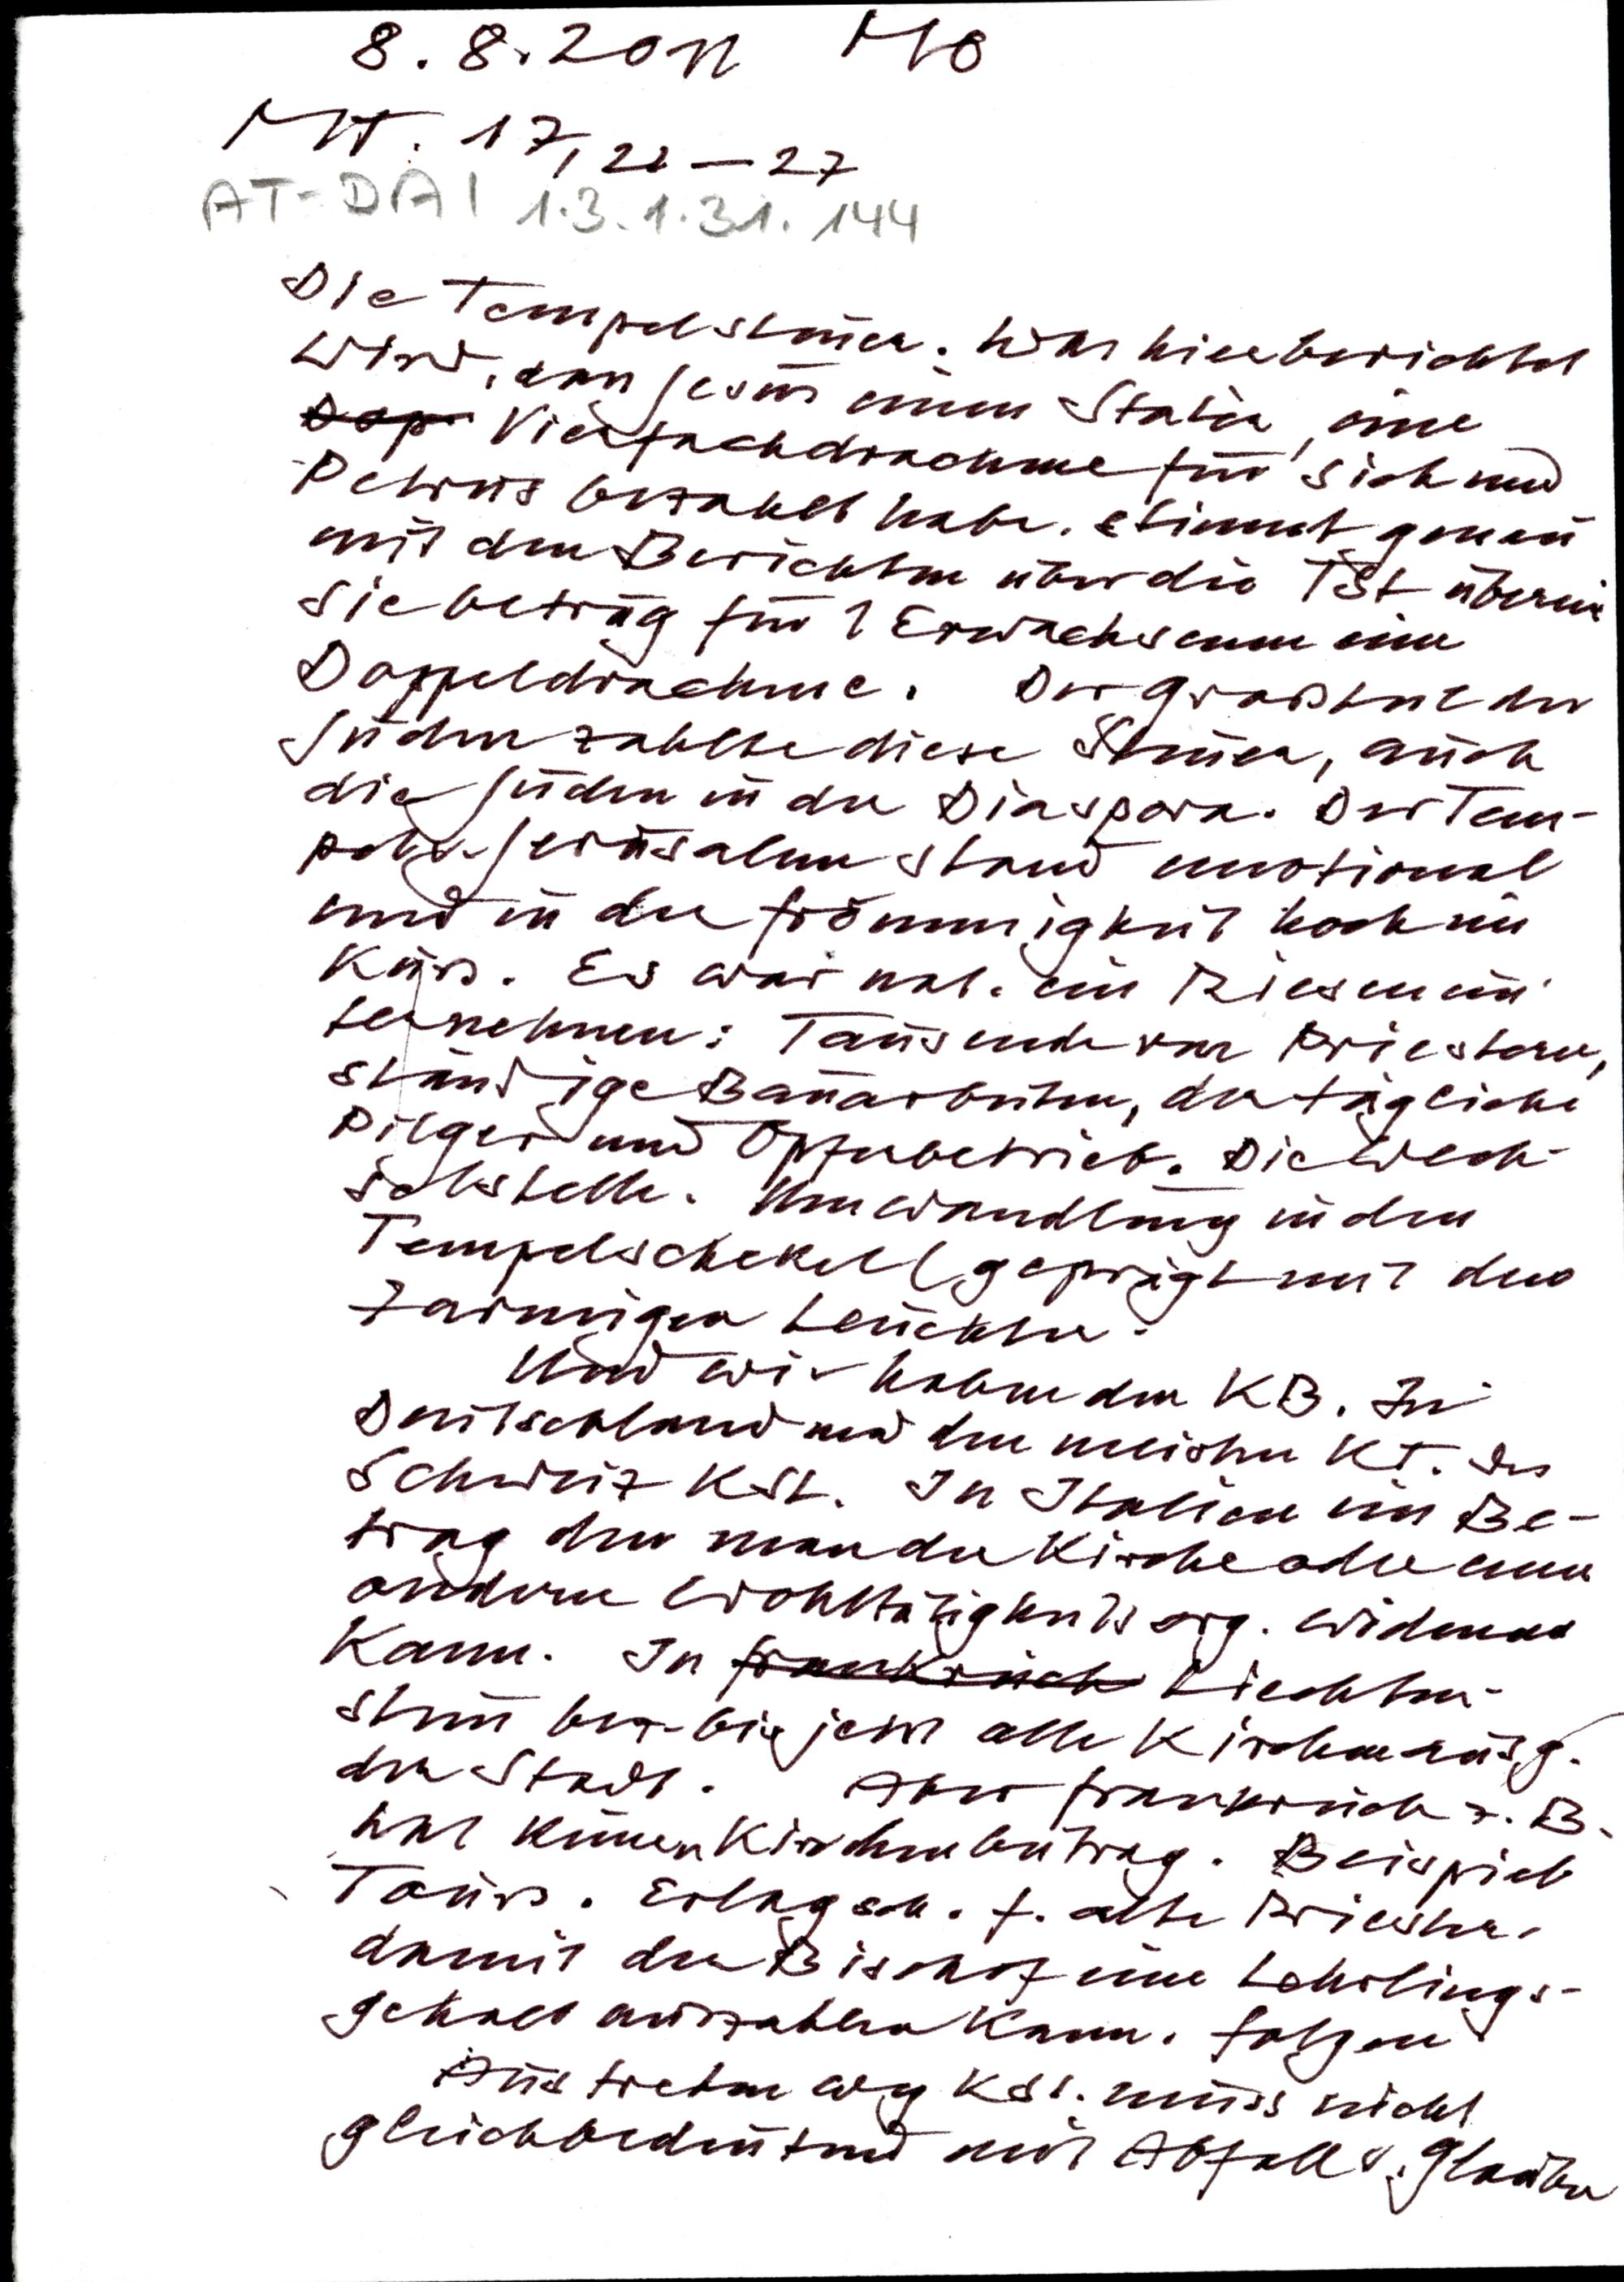 8.8.2011 MO
MT. 17, 22-27
AT-DAI 1.3.1.31.144
Die Tempelsteuer. Was hier berichtet
wird, dass Jesus einen Stater, eine
Dop Vierfachdrachme für sich und
Petrus bezahlt habe. stimmt genau
mit den Berichten über die TSt überein
Sie betrug für 1 Erwachsenen eine
Doppeldrachme. Der Grossteil der
Juden zahlte diese Steuer, auch
die Juden in der Diaspora. Der Tem-
pel v. Jerusalem stand emotional
und in der Frömmigkeit hoch im
Kurs. Es war nat. ein Riesenun
ternehmen: Tausende von Priestern,
ständige Bauarbeiten, der tägliche
Pilger und Opferbetrieb. Die Wech-
selstelle. Umwandlung in den
Tempelschekel (geprägt mit dem
7armigen Leuchter.
Und wir haben den KB. In
Deutschland und den meisten KT. der
Schweiz KSt. In Italien ein Be-
trag den man der Kirche oder einer
anderen Wohltätigkeitsorg. widmen
kann. In Frankreich Liechten-
stein bez. bis jetzt alle Kirchenausg.
der Staat. Aber Frankreich z.B.
hat keinen Kirchenbeitrag. Beispiel
Tours. Erlagsch. f. alte Priester.
damit der Bischof ein Lehrlings-
gehalt auszahlen kann. Folgen
Austreten weg KSt. muss nicht
gleichbedeutend mit Abfall v. Glauben